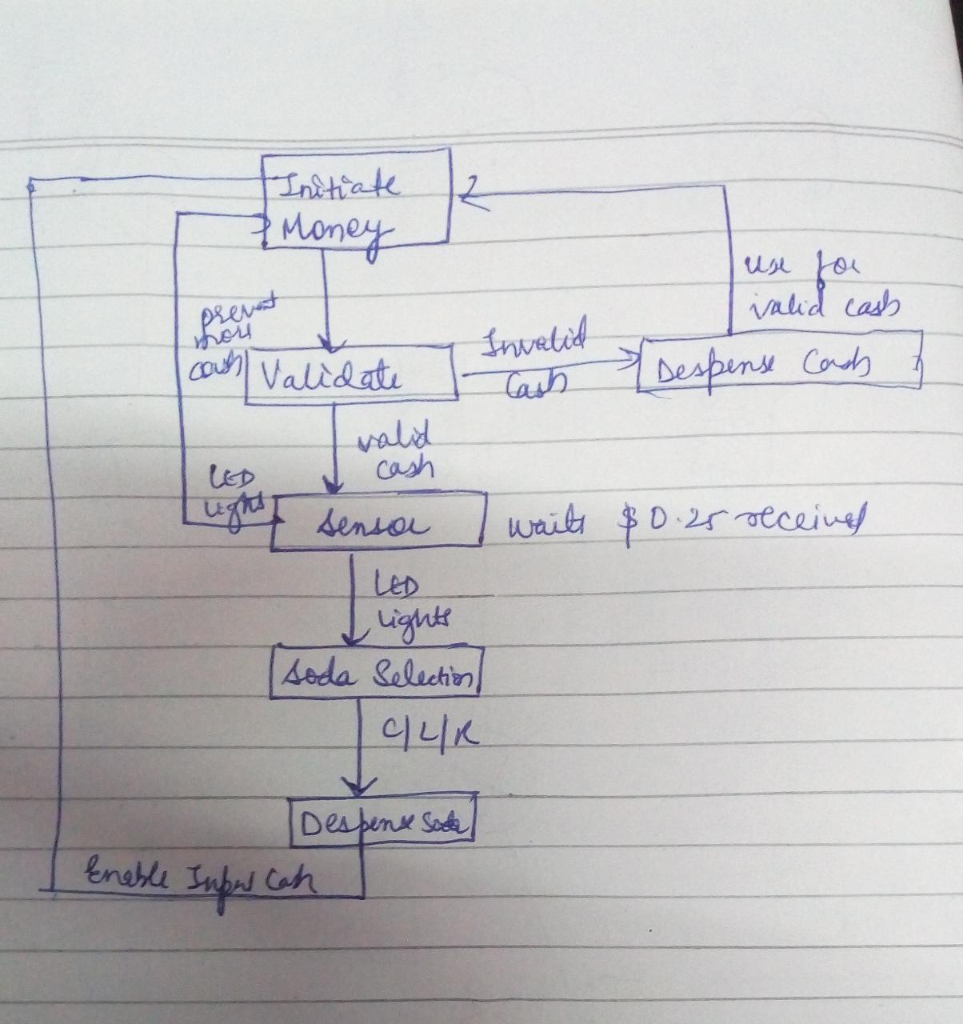 Initiate
Money
use for
valid cash
prevent
more
cash
Validate
Invalid
Cash
Despense Cash
valid
cash
LED
Lights
Sensor
waits $0.25 received
LED
Lights
Soda Selection
C/L/R
Despense Soda
Enable Input Cash